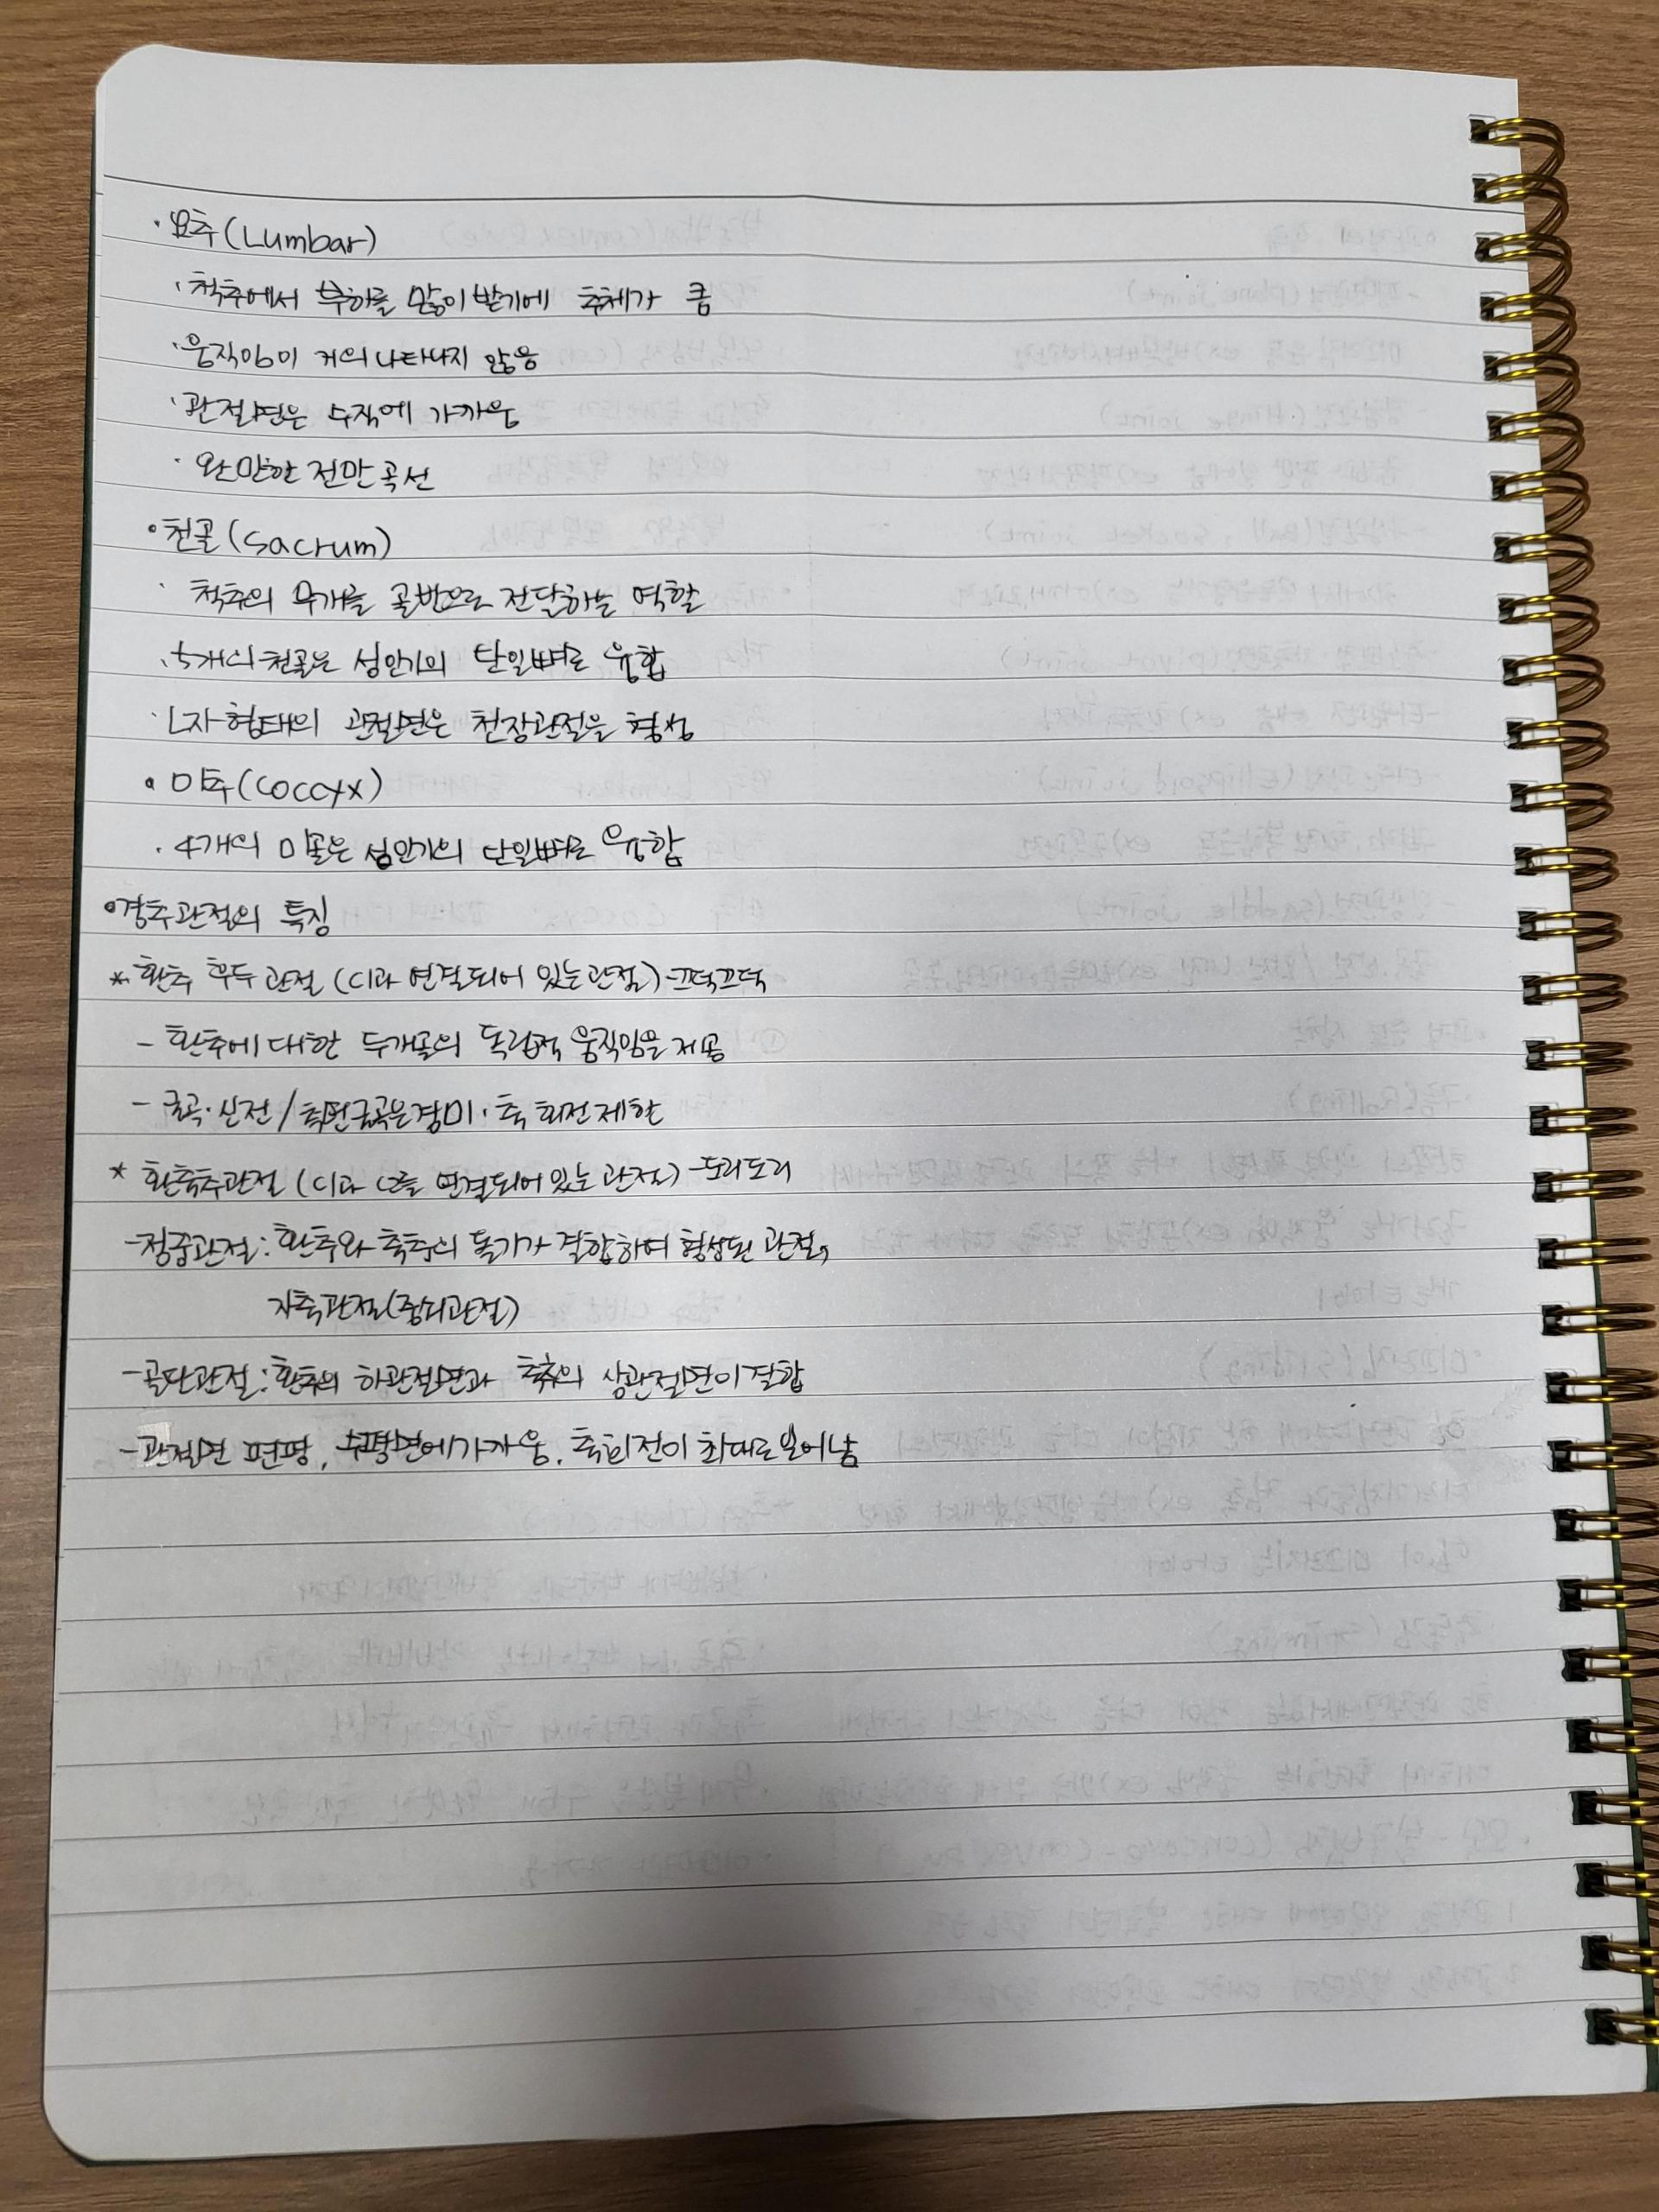 · 요추(Lumbar)
· 척추에서 부하를 많이 받기에 추체가 큼
· 움직임이 거의 나타나지 않음
· 관절면은 수직에 가까움
· 완만한 전만 곡선
• 천골(Sacrum)
· 척추의 무게를 골반으로 전달하는 역할
· 5개의 천골은 성인기의 단일뼈로 융합
· L자 형태의 관절면은 천장관절을 형성
• 미추(coccyx)
· 4개의 미골은 성인기의 단일뼈로 융합
• 경추관절의 특징
* 환추 후두 관절 (C1과 연결되어 있는 관절)-끄덕끄덕
- 환추에 대한 두개골의 독립적 움직임을 제공
- 굴곡·신전 / 측면굴곡은 경미 · 축 회전 제한
* 환축추관절 (C1과 C2를 연결되어 있는 관절) -도리도리
-정중관절: 환추와 축추의 돌기가 결합하여 형성된 관절,
차축관절(중쇠관절)
-골단관절: 환추의 하관절면과 축추의 상관절면이 결합
-관절면 편평, 수평면에 가까움. 축회전이 최대로 일어남